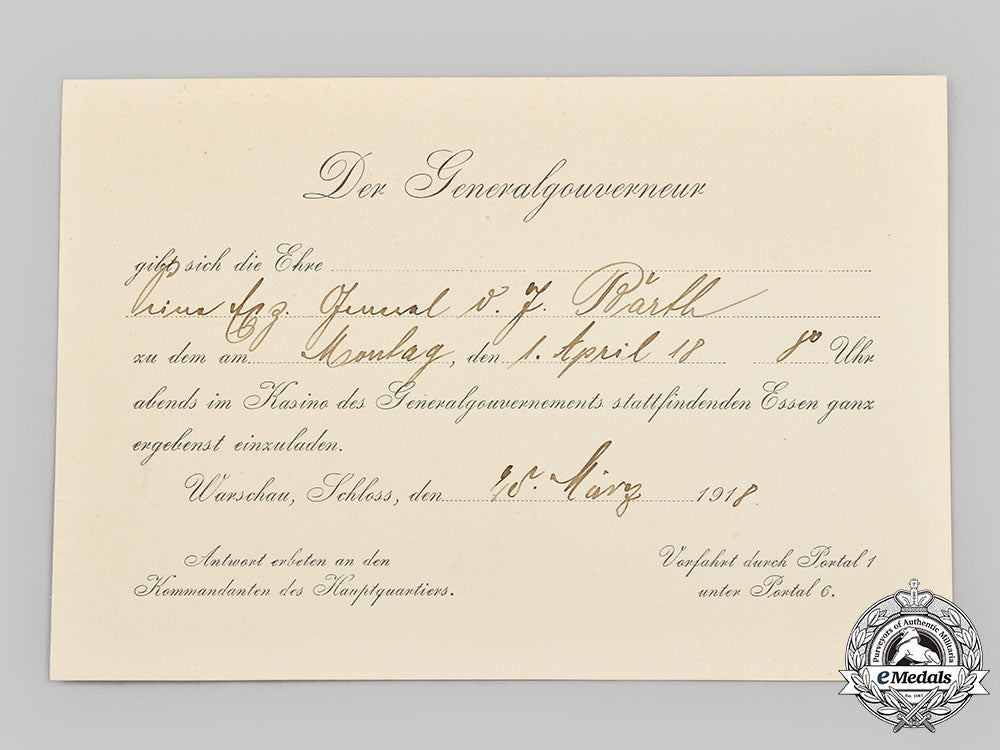 Der Generalgouverneur
gibt sich die Ehre
Seine Exz. General d. J. Barth
zu dem am Montag, den 1. April 18 8⁰⁰ Uhr
abends im Kasino des Generalgouvernements stattfindenden Essen ganz
ergebenst einzuladen.
Warschau, Schloss, den März 1918.
Antwort erbeten an den
Kommandanten des Hauptquartiers.
Vorfahrt durch Portal 1
unter Portal 6.
Purveyors of Authentic Militaria
eMedals